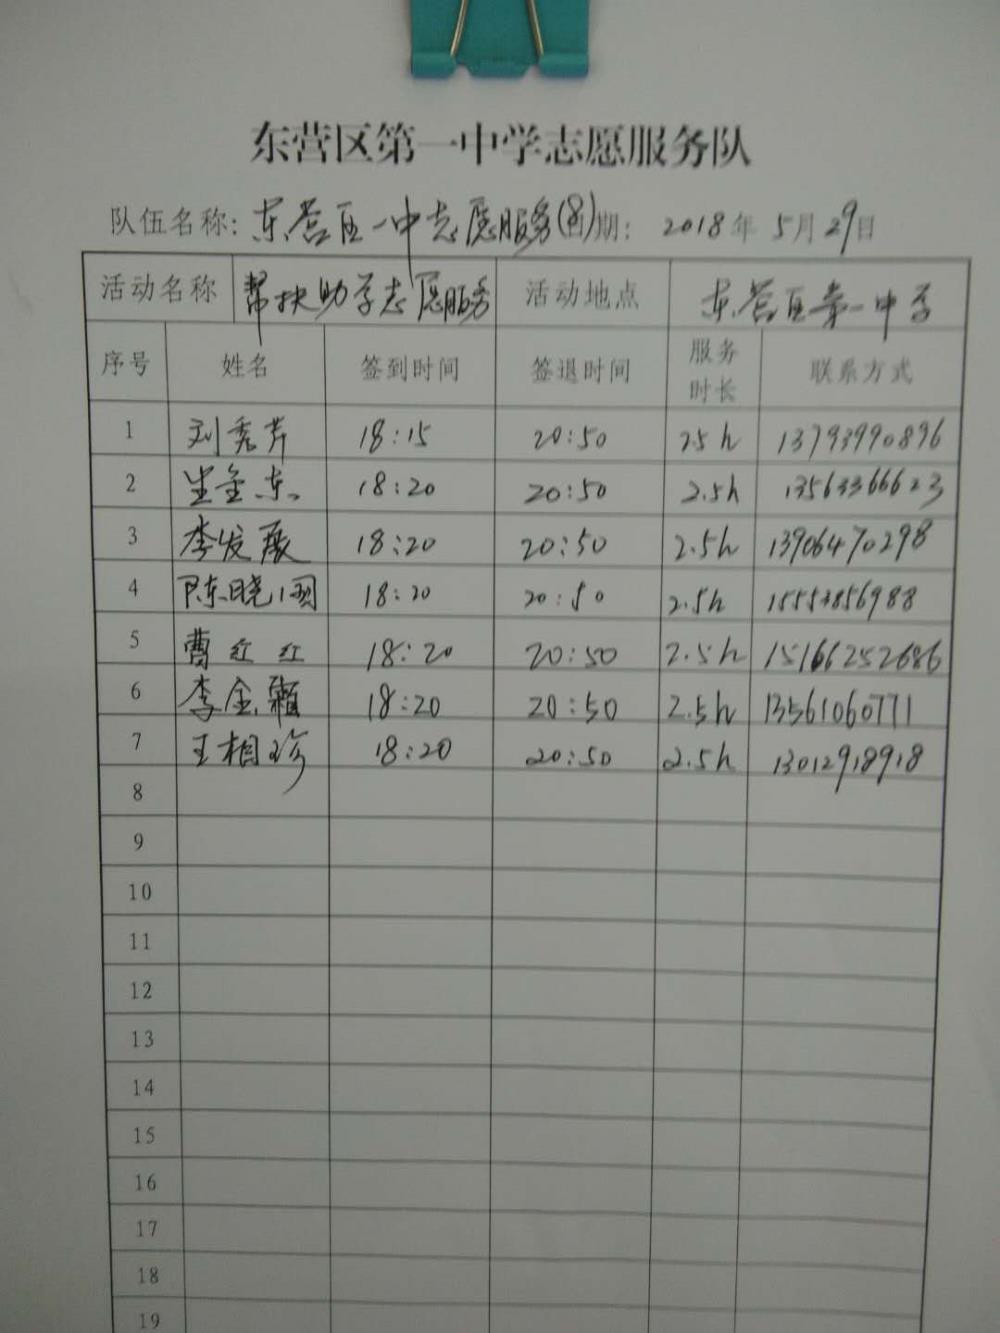 东营区第一中学志愿服务队
队伍名称: 东营区一中志愿服务(8)期: 2018年 5月29日
活动名称 帮扶助学志愿服务 活动地点 东营区第一中学
序号 姓名 签到时间 签退时间 服务时长 联系方式
1 刘秀芹 18:15 20:50 25h 13793990896
2 生金东 18:20 20:50 2.5h 13563366623
3 李发展 18:20 20:50 2.5h 13906470298
4 陈晓国 18:20 20:50 2.5h 15553856988
5 曹红红 18:20 20:50 2.5h 15166252686
6 李金颖 18:20 20:50 2.5h 13561060771
7 王相珍 18:20 20:50 2.5h 13012918918
8
9
10
11
12
13
14
15
16
17
18
19